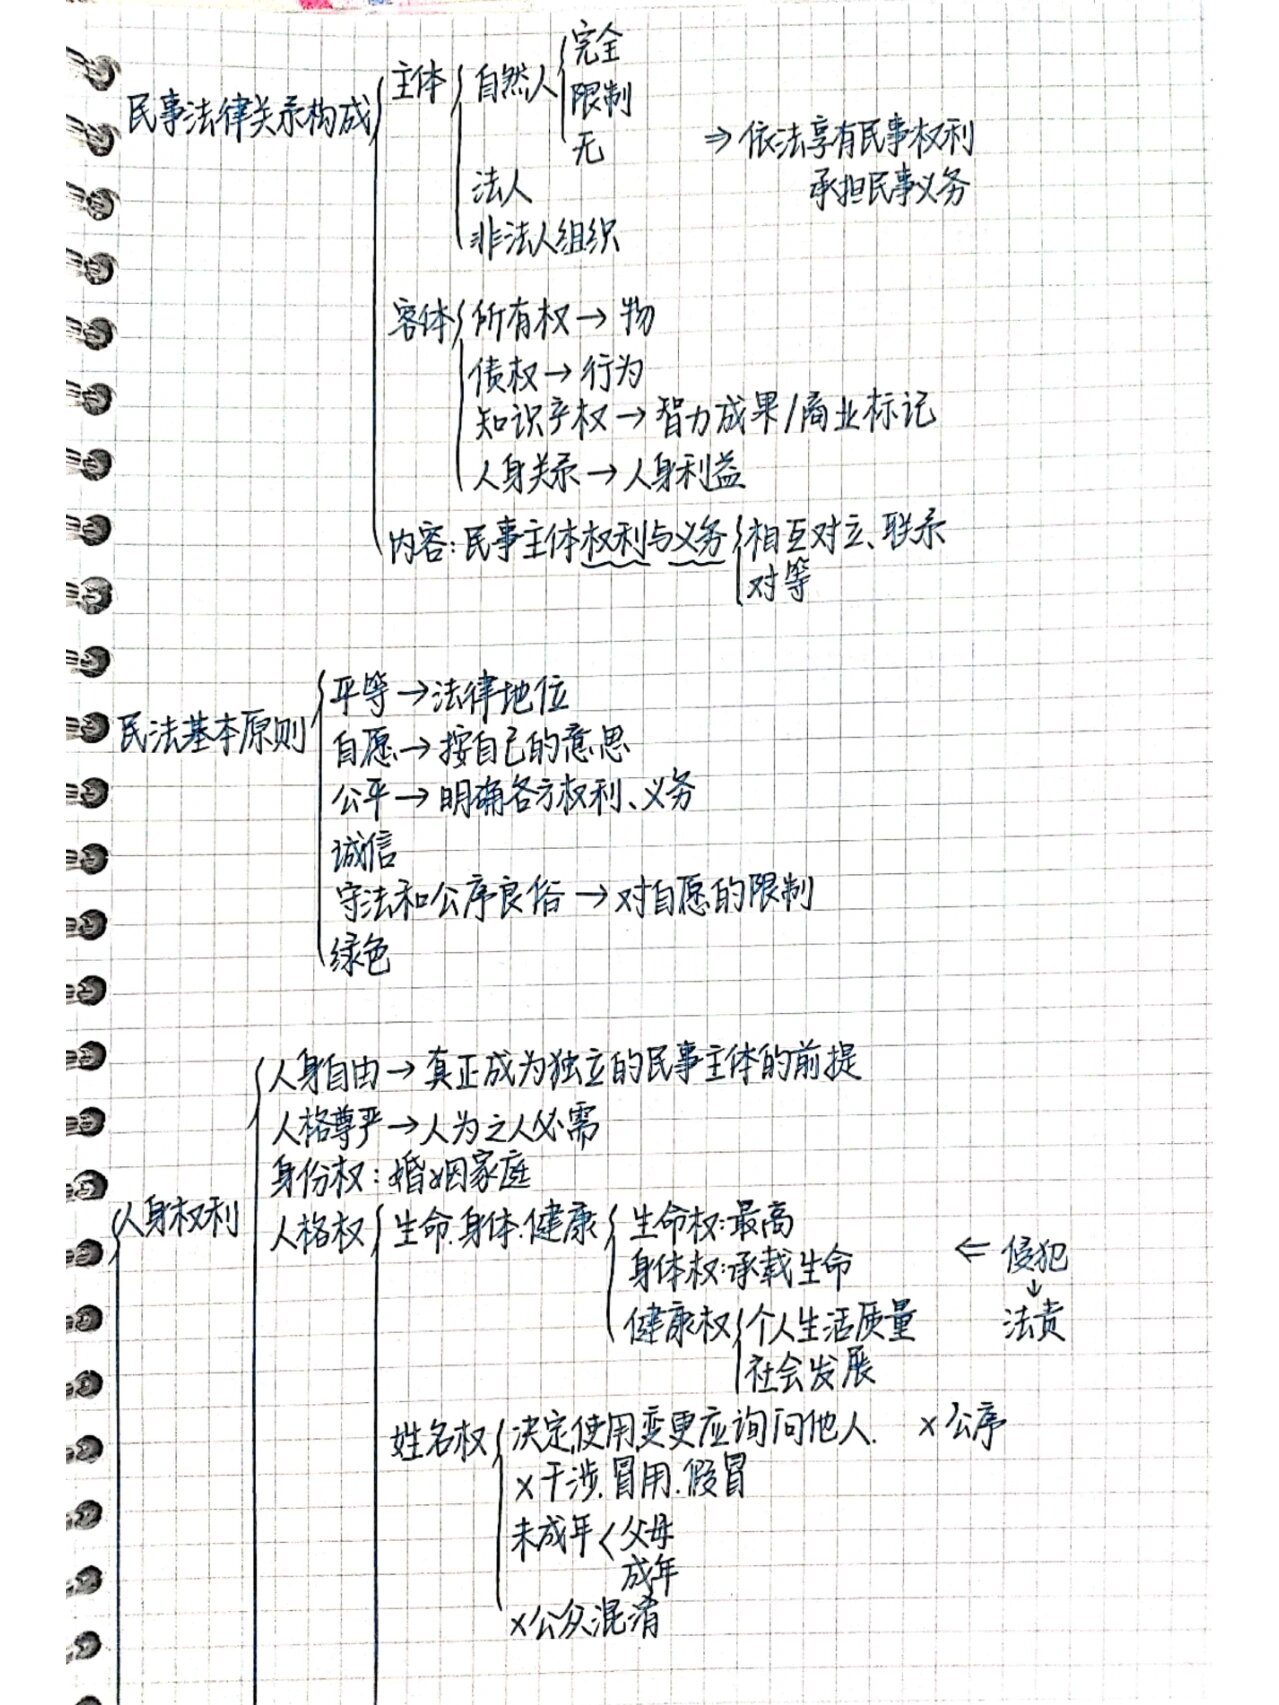 民事法律关系构成
主体
自然人
完全
限制
无
法人
非法人组织
⇒ 依法享有民事权利
承担民事义务
客体
所有权→物
债权→行为
知识产权→智力成果/商业标记
人身关系→人身利益
内容:民事主体权利与义务
相互对立、联系
对等
民法基本原则
平等→法律地位
自愿→按自己的意思
公平→明确各方权利、义务
诚信
守法和公序良俗→对自愿的限制
绿色
人身权利
人身自由→真正成为独立的民事主体的前提
人格尊严→人为之人必需
身份权:婚姻家庭
人格权
生命.身体.健康
生命权:最高
身体权:承载生命
健康权
个人生活质量
社会发展
⇐ 侵犯
↓
法责
姓名权
决定,使用,变更应询问他人. ×公序
×干涉.冒用.假冒
未成年<父母
成年
×公众混淆